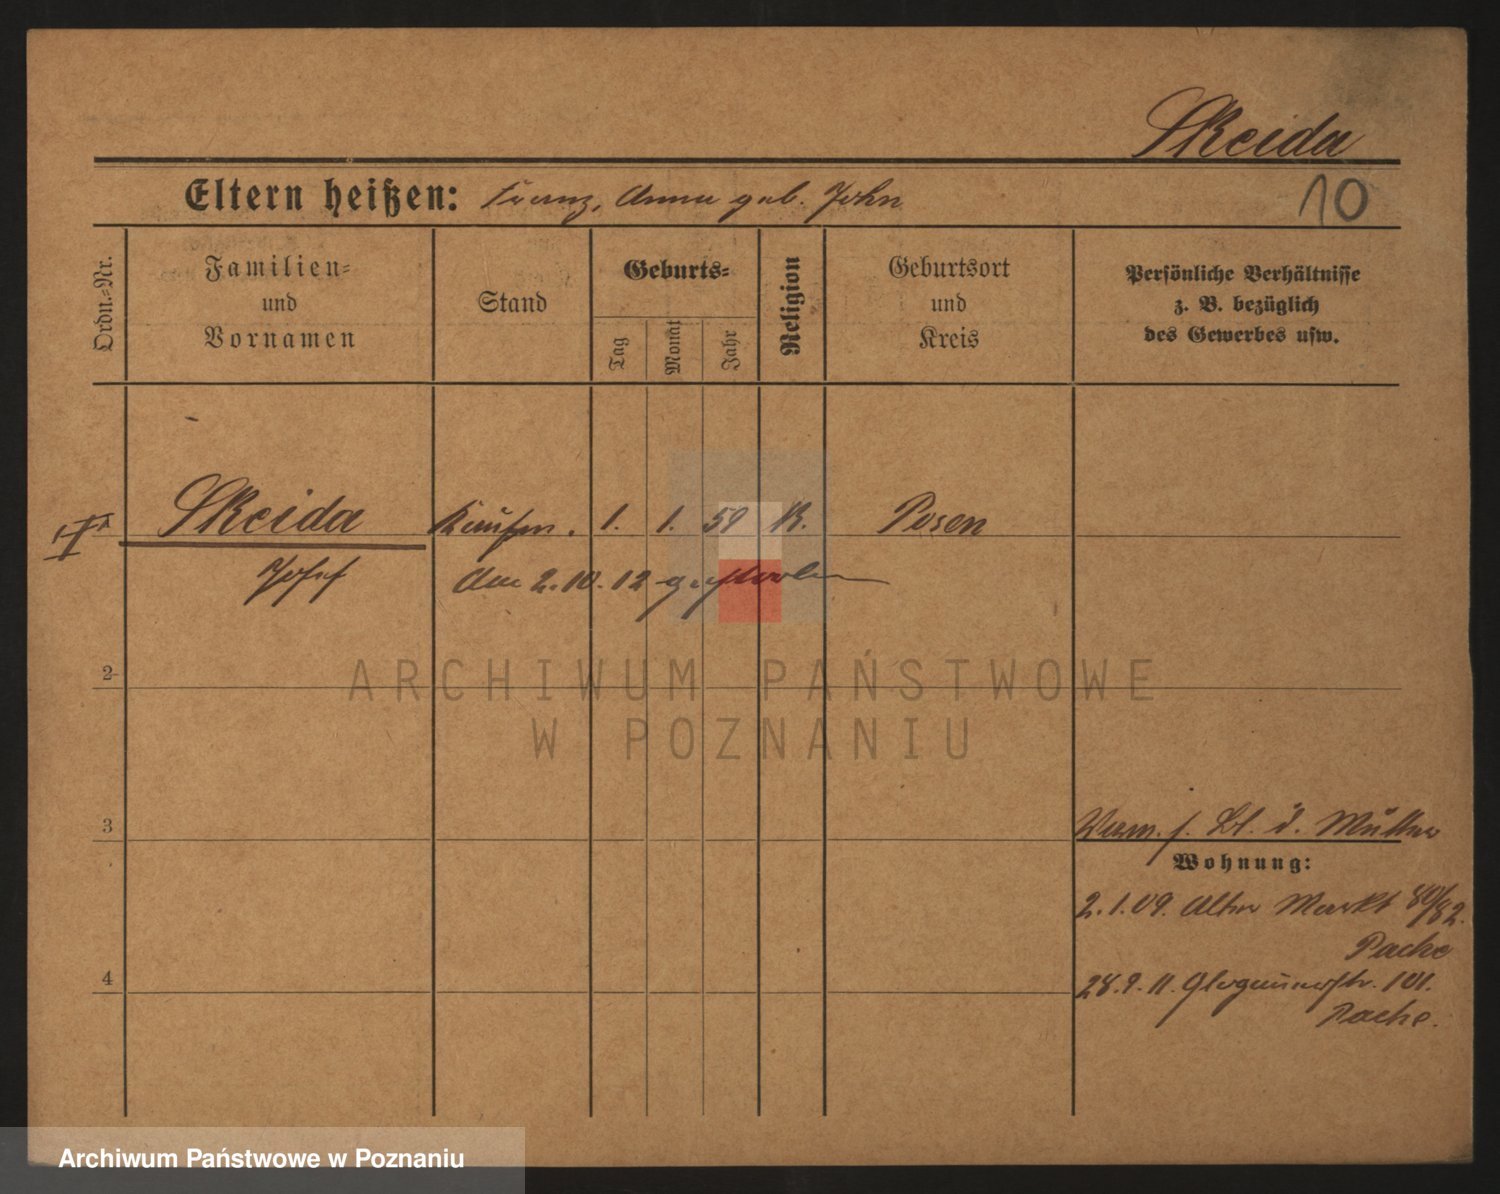 Skeida
Eltern heißen: Franz, Anna geb. John
10
Ordn.-Nr.
Familien-
und
Vornamen
Stand
Geburts-
Tag
Monat
Jahr
Religion
Geburtsort
und
Kreis
Persönliche Verhältnisse
z. B. bezüglich
des Gewerbes usw.
Skeida Kaufm. 1. 1. 59 K. Posen
Josef am 2.10.12 gestorben
2
ARCHIWUM PAŃSTWOWE
W POZNANIU
3
Verm. s. Bl. d. Mutter
Wohnung:
2.1.09. Alter Markt 80/82.
Pache
4
28.9.11. Glogauerstr. 101.
Pache.
Archiwum Państwowe w Poznaniu